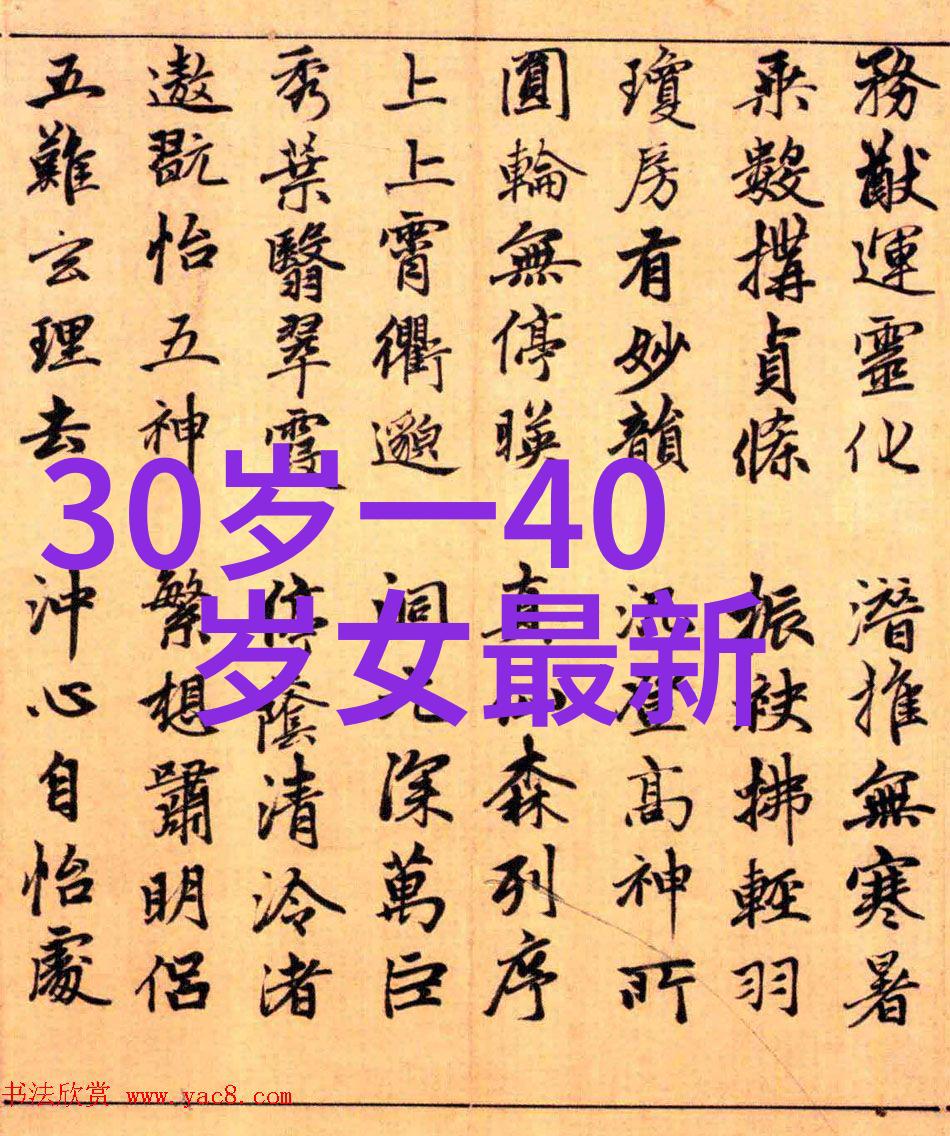 務猷運靈化
潛推無寒暑
乘數構貞條
振袂拂輕羽
瓊房有妙韻
登高神所
圓輪無停暎
真森列序
上上霄衢邈
洞元深萬巨
秀葉翳翠雪
停蔭清泠渚
遨翫怡五神
繁想嘯明侶
五難玄理去
沖心自怡處
30岁一40
岁女最新
书法欣赏 www.yac8.com